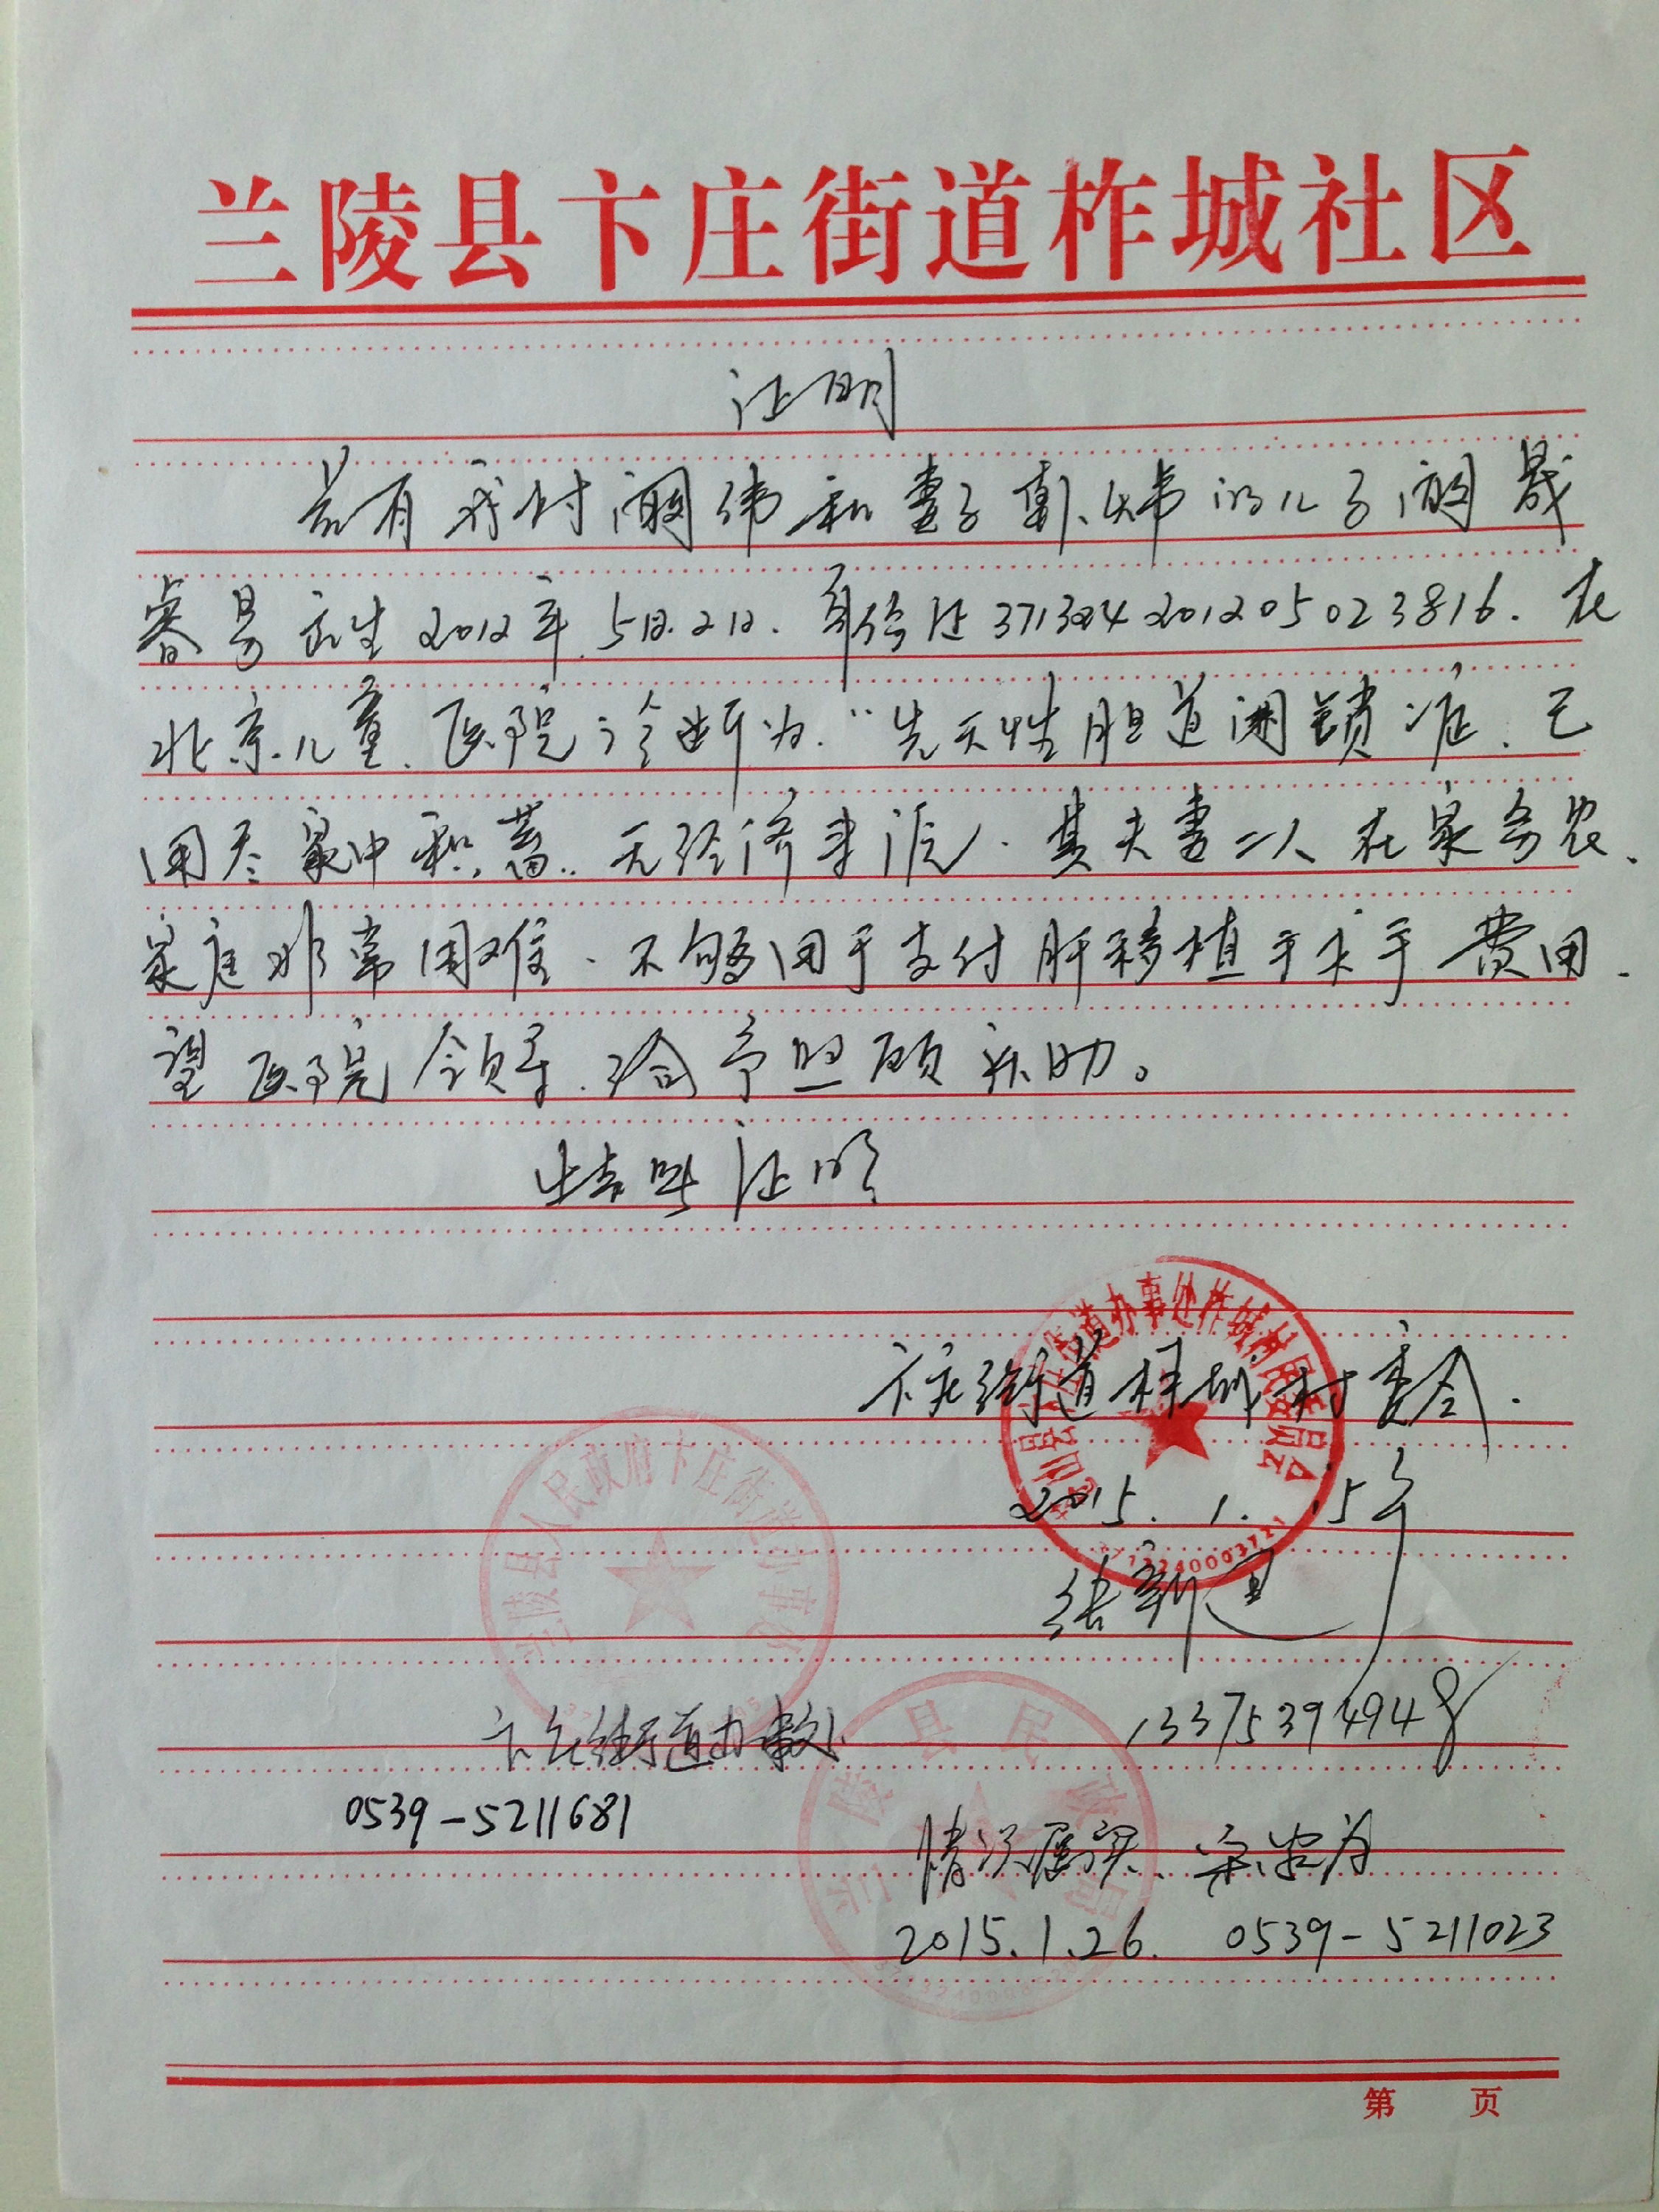 兰陵县卞庄街道柞城社区
证明
兹有我村 伟和妻子 的儿子 晟
睿 出生2012年.5月.2日.身份证371324201205023816.在
北京儿童医院诊断为."先天性胆道闭锁症.已
用尽家中积蓄.无经济来源.其夫妻二人在家务农、
家庭非常困难.不够用于支付肝移植手术手费用.
望医院领导.给予照顾补助。
特此证明
苍山县卞庄街道办事处柞城村民委员会
卞庄街道柞城村委会.
2015.1.15号
兰陵县人民政府卞庄街道办事处
张新
13375394948
卞庄街道办事处
0539-5211681
兰陵县民政局
情况属实、宋
2015.1.26. 0539-5211023
第 页